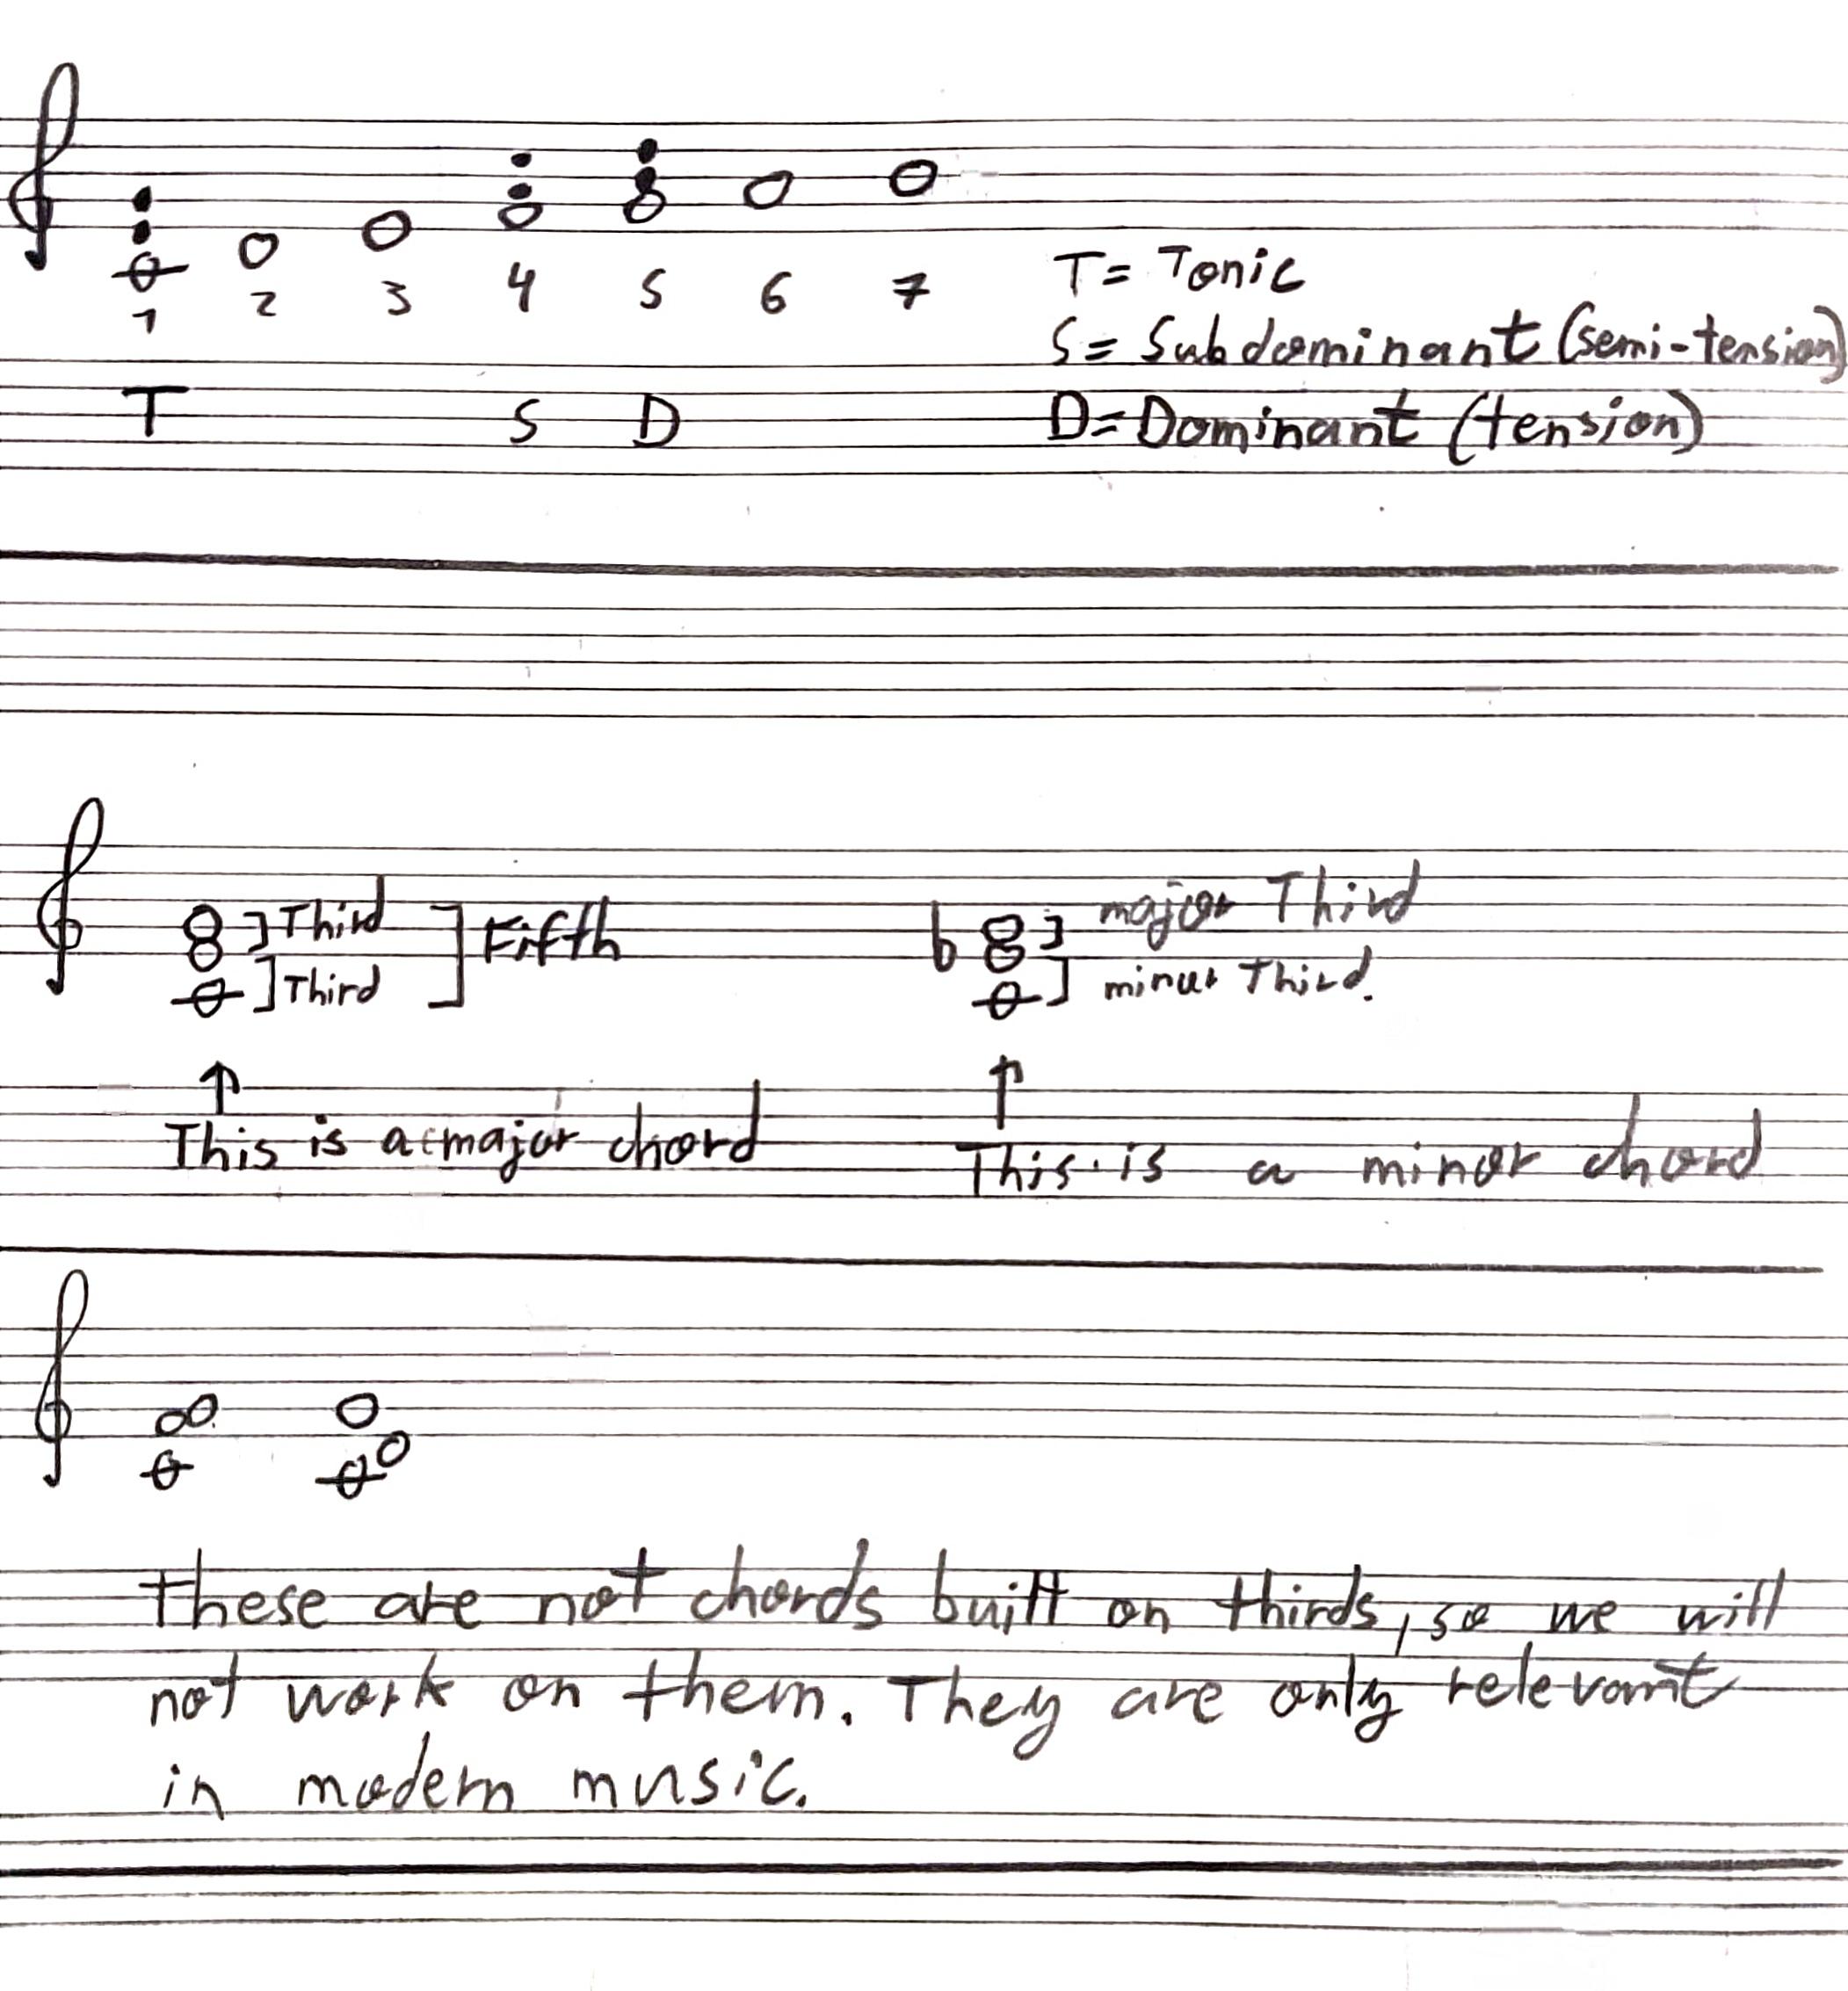 1 2 3 4 5 6 7
T= Tonic
S= Subdominant (semi-tension)
T S D
D= Dominant (tension)
]Third ]Fifth
]Third
b ] major Third
] minor Third.
↑ ↑
This is a major chord
This is a minor chord
These are not chords built on thirds, so we will
not work on them. They are only relevant
in modern music.